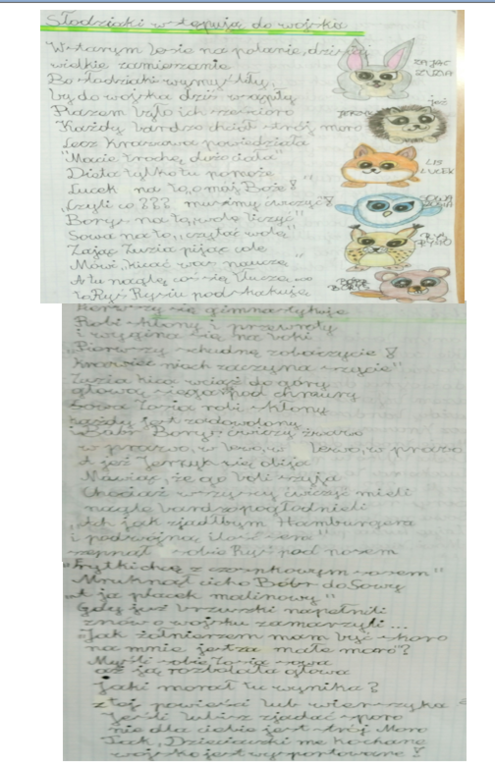 Słodziaki wstępują do wojska
W starym lesie na polanie, dzisiaj
wielkie zamieszanie
Bo słodziaki wymyśliły,
by do wojska dziś wstąpiły
Razem było ich sześcioro
Każdy bardzo chciał strój moro
Lecz krawcowa powiedziała
"Macie trochę dużo ciała"
Dieta tylko tu pomoże
Lucek na to, o mój Boże!
"Czyli co??? musimy ćwiczyć!
Borys na to, wolę liczyć"
Sowa na to, "czytać wolę"
Zając Zuzia pijąc colę
Mówi, "kicać was nauczę"
A tu nagle coś się tłucze
to Ryś Rysiu podskakuje
się gimnastykuje
Robi skłony i przewroty
i wygina się na boki
"Pierwszy schudnę zobaczycie!
Krawiec niech zaczyna szycie"
Zuzia kica wciąż do góry
głową sięga pod chmury
Sowa Zosia robi skłony
każdy jest zadowolony
Bóbr Borys ćwiczy żwawo
w prawo, w lewo, w lewo, w prawo
A jeż Jerzyk się obija
Mówiąc, że go boli szyja
Chociaż wszyscy ćwiczyć mieli
nagle bardzo zgłodnieli
"Ach jak zjadłbym Hamburgera
i podwójna
szepnął sobie Ryś pod nosem
"Frytki chcę z czosnkowym sosem"
Mruknął cicho Bóbr do Sowy
"A ja placek malinowy"
Gdy już brzuszki napełnili
znów o wojsku zamarzyli...
"Jak żołnierzem mam być skoro
na mnie jest za małe moro"?
Myśli sobie Zosia sowa
aż ją rozbolała głowa
Jaki morał tu wynika?
z tej powieści lub wierszyka
Jeśli lubisz zjadać sporo
nie dla ciebie jest strój Moro
Tak, Dzieciaczki me kochane
wojsko jest wysportowane!
ZAJĄC
ZUZIA
jeż
JERZYK
LIS
LUCEK
SOWA
ZOSIA
RYŚ
RYSIO
BÓBR
BORYS